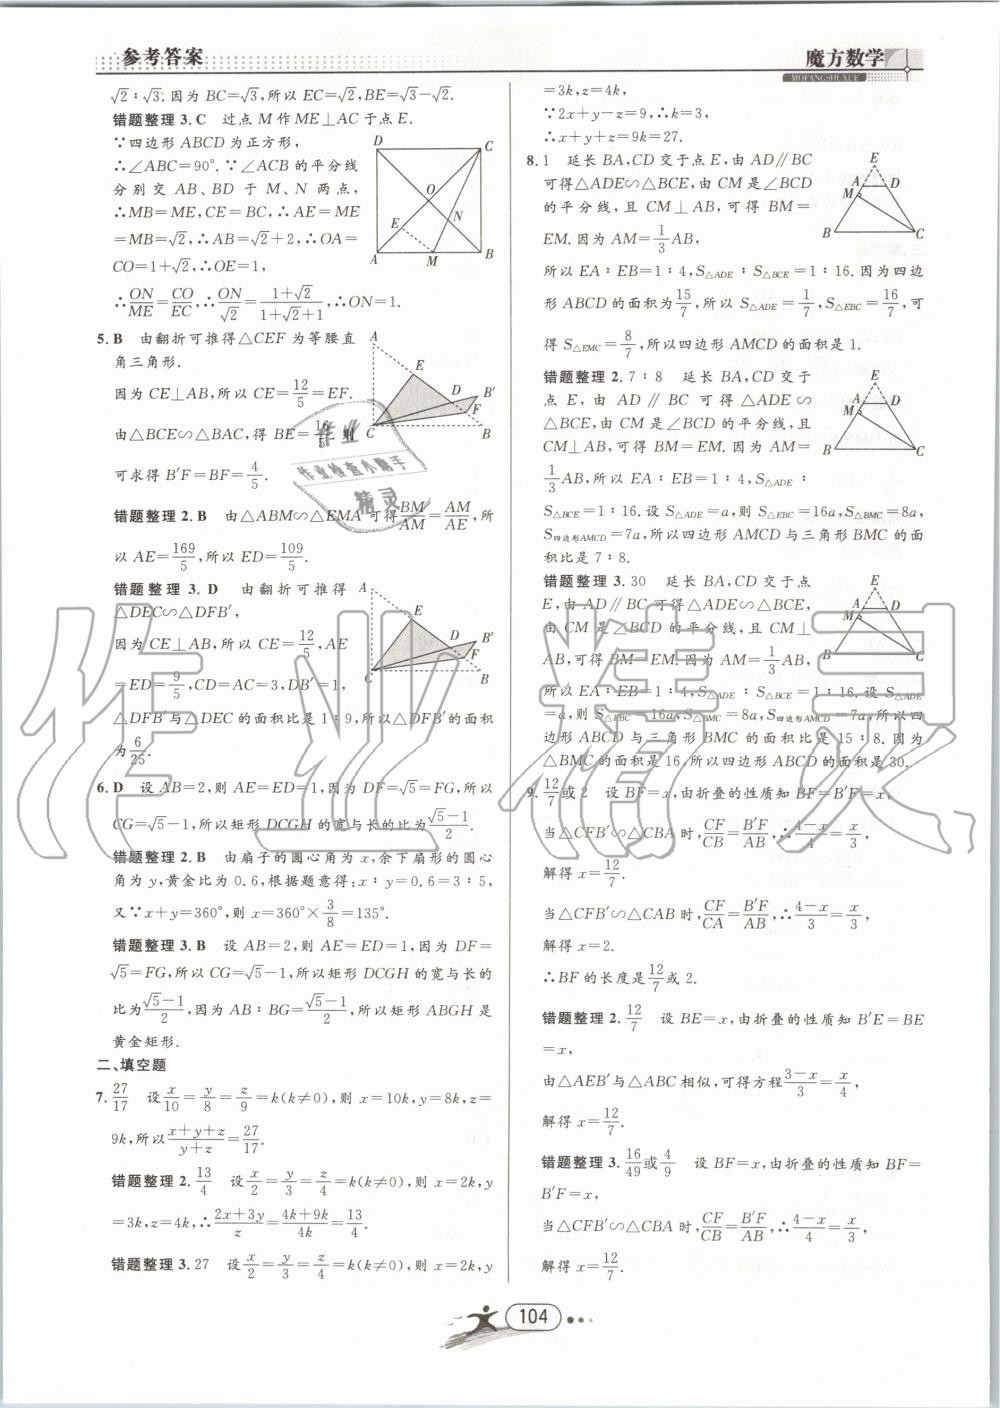 参考答案
魔方数学
MOFANGSHUXUE
√2∶√3.因为 BC=√3,所以 EC=√2,BE=√3-√2.
错题整理 3.C 过点 M 作 ME⊥AC 于点 E.
∵四边形 ABCD 为正方形,
∴∠ABC=90°.∵∠ACB 的平分线
分别交 AB、BD 于 M、N 两点,
∴MB=ME,CE=BC,∴AE=ME
=MB=√2,∴AB=√2+2,∴OA=
CO=1+√2,∴OE=1,
∴ON/ME=CO/EC,∴ON/√2=(1+√2)/(1+√2+1),∴ON=1.
D C O E N A M B
5.B 由翻折可推得△CEF 为等腰直
角三角形.
因为 CE⊥AB,所以 CE=12/5=EF.
由△BCE∽△BAC,得 BE=16/5,则
可求得 B′F=BF=4/5.
A E D B′ F C B
错题整理 2.B 由△ABM∽△EMA 可得BM/AM=AM/AE,所
以 AE=169/5,所以 ED=109/5.
错题整理 3.D 由翻折可推得
△DEC∽△DFB′,
因为 CE⊥AB,所以 CE=12/5,AE
=ED=9/5,CD=AC=3,DB′=1,
△DFB′与△DEC 的面积比是 1∶9,所以△DFB′的面积
为6/25.
A E D B′ F C B
6.D 设 AB=2,则 AE=ED=1,因为 DF=√5=FG,所以
CG=√5-1,所以矩形 DCGH 的宽与长的比为(√5-1)/2.
错题整理 2.B 由扇子的圆心角为 x,余下扇形的圆心
角为 y,黄金比为 0.6,根据题意得:x∶y=0.6=3∶5,
又∵x+y=360°,则 x=360°×3/8=135°.
错题整理 3.B 设 AB=2,则 AE=ED=1,因为 DF=
√5=FG,所以 CG=√5-1,所以矩形 DCGH 的宽与长的
比为(√5-1)/2,因为 AB∶BG=(√5-1)/2,所以矩形 ABGH 是
黄金矩形.
二、填空题
7.27/17 设x/10=y/8=z/9=k(k≠0),则 x=10k,y=8k,z=
9k,所以(x+y+z)/(y+z)=27/17.
错题整理 2.13/4 设x/2=y/3=z/4=k(k≠0),则 x=2k,y
=3k,z=4k,∴(2x+3y)/z=(4k+9k)/4k=13/4.
错题整理 3.27 设x/2=y/3=z/4=k(k≠0),则 x=2k,y
=3k,z=4k,
∵2x+y-z=9,∴k=3,
∴x+y+z=9k=27.
8.1 延长 BA,CD 交于点 E,由 AD∥BC
可得△ADE∽△BCE,由 CM 是∠BCD
的平分线,且 CM⊥AB,可得 BM=
EM.因为 AM=1/3AB,
E A D M B C
所以 EA∶EB=1∶4,S△ADE∶S△BCE=1∶16.因为四边
形 ABCD 的面积为15/7,所以 S△ADE=1/7,S△EBC=16/7,可
得 S△EMC=8/7,所以四边形 AMCD 的面积是 1.
错题整理 2.7∶8 延长 BA,CD 交于
点 E,由 AD∥BC 可得△ADE∽
△BCE,由 CM 是∠BCD 的平分线,且
CM⊥AB,可得 BM=EM.因为 AM=
1/3AB,所以 EA∶EB=1∶4,S△ADE∶
E A D M B C
S△BCE=1∶16.设 S△ADE=a,则 S△EBC=16a,S△BMC=8a,
S四边形AMCD=7a,所以四边形 AMCD 与三角形 BMC 的面
积比是 7∶8.
错题整理 3.30 延长 BA,CD 交于点
E,由 AD∥BC 可得△ADE∽△BCE,
由 CM 是∠BCD 的平分线,且 CM⊥
AB,可得 BM=EM.因为 AM=1/3AB,
E A D M B C
所以 EA∶EB=1∶4,S△ADE∶S△BCE=1∶16.设 S△ADE
=a,则 S△EBC=16a,S△BMC=8a,S四边形AMCD=7a,所以四
边形 ABCD 与三角形 BMC 的面积比是 15∶8.因为
△BMC 的面积是 16,所以四边形 ABCD 的面积是 30.
9.12/7或 2 设 BF=x,由折叠的性质知 BF=B′F=x,
当△CFB′∽△CBA 时,CF/CB=B′F/AB,∴(4-x)/4=x/3,
解得 x=12/7.
当△CFB′∽△CAB 时,CF/CA=B′F/AB,∴(4-x)/3=x/3,
解得 x=2.
∴BF 的长度是12/7或 2.
错题整理 2.12/7 设 BE=x,由折叠的性质知 B′E=BE
=x,
由△AEB′与△ABC 相似,可得方程(3-x)/3=x/4,
解得 x=12/7.
错题整理 3.16/49或4/9 设 BF=x,由折叠的性质知 BF=
B′F=x,
当△CFB′∽△CBA 时,CF/CB=B′F/AB,∴(4-x)/4=x/3,
解得 x=12/7.
104
作业精灵
作业
作业检查小助手
精灵